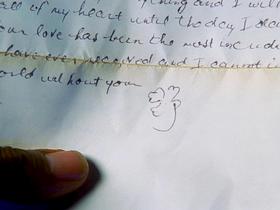 thing and I will
all of my heart until the day I
our love has been the most
have ever received and I cannot
world without you